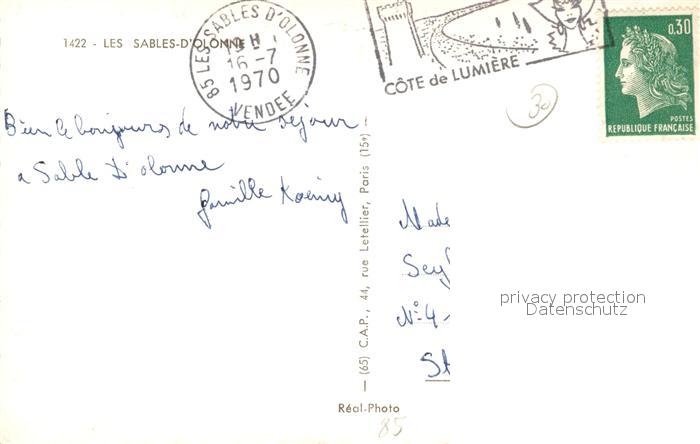 1422 - LES SABLES-D'OLONNE
85 LES SABLES D'OLONNE
16-7
1970
VENDEE
CÔTE de LUMIÈRE
0,30
POSTES
REPUBLIQUE FRANÇAISE
30
Bien le bonjours de notre séjour
a Sable D'olonne
famille Koenig
(65) C.A.P., 44, rue Letellier, Paris (15e)
Made
Sey
N° 4 -
St
privacy protection
Datenschutz
Réal-Photo
85